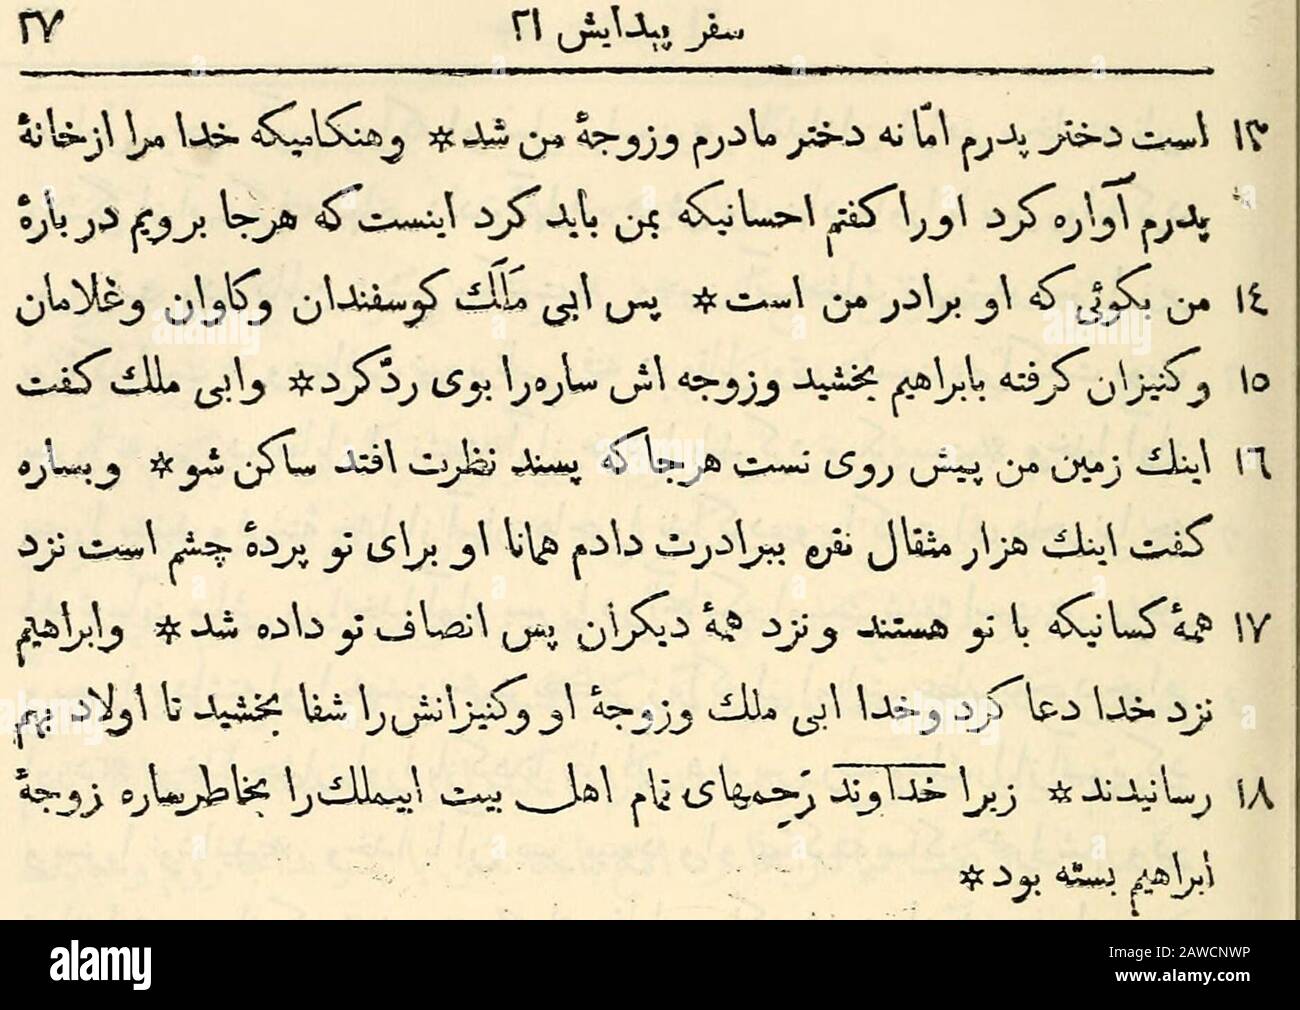 ۲۷ سفر پیدایش ۲۱
۱۳ است دختر پدرم امّا نه دختر مادرم وزوجهٔ من شد ✡ وهنکامیکه خدا مرا ازخانهٔ
پدرم آواره کرد اورا کفتم احسانیکه بمن باید کرد اینست که هرجا برویم در بارهٔ
۱٤ من بکوئی که او برادر من است ✡ پس ابی مَلَك کوسفندان وکاوان وغلامان
۱۵ وکنیزان کرفته بابراهیم بخشید وزوجه اش ساره‌را بوی ردّ کرد ✡ وابی ملك کفت
۱٦ اینك زمین من پیش روی تست هرجا که پسند نظرت افتد ساکن شو ✡ وبساره
کفت اینك هزار مثقال نقره ببرادرت دادم همانا او برای تو پردهٔ چشم است نزد
۱۷ همهٔ کسانیکه با تو هستند ونزد همهٔ دیکران پس انصاف تو داده شد ✡ وابراهیم
نزد خدا دعا کرد وخدا ابی ملك وزوجهٔ او وکنیزانش را شفا بخشید تا اولاد بهم
۱۸ رسانیدند ✡ زیرا خداوند رَحِمهای تمام اهل بیت ابیملك را بخاطرساره زوجهٔ
ابراهیم بسته بود ✡
alamy
Image ID: 2AWCNWP
www.alamy.com